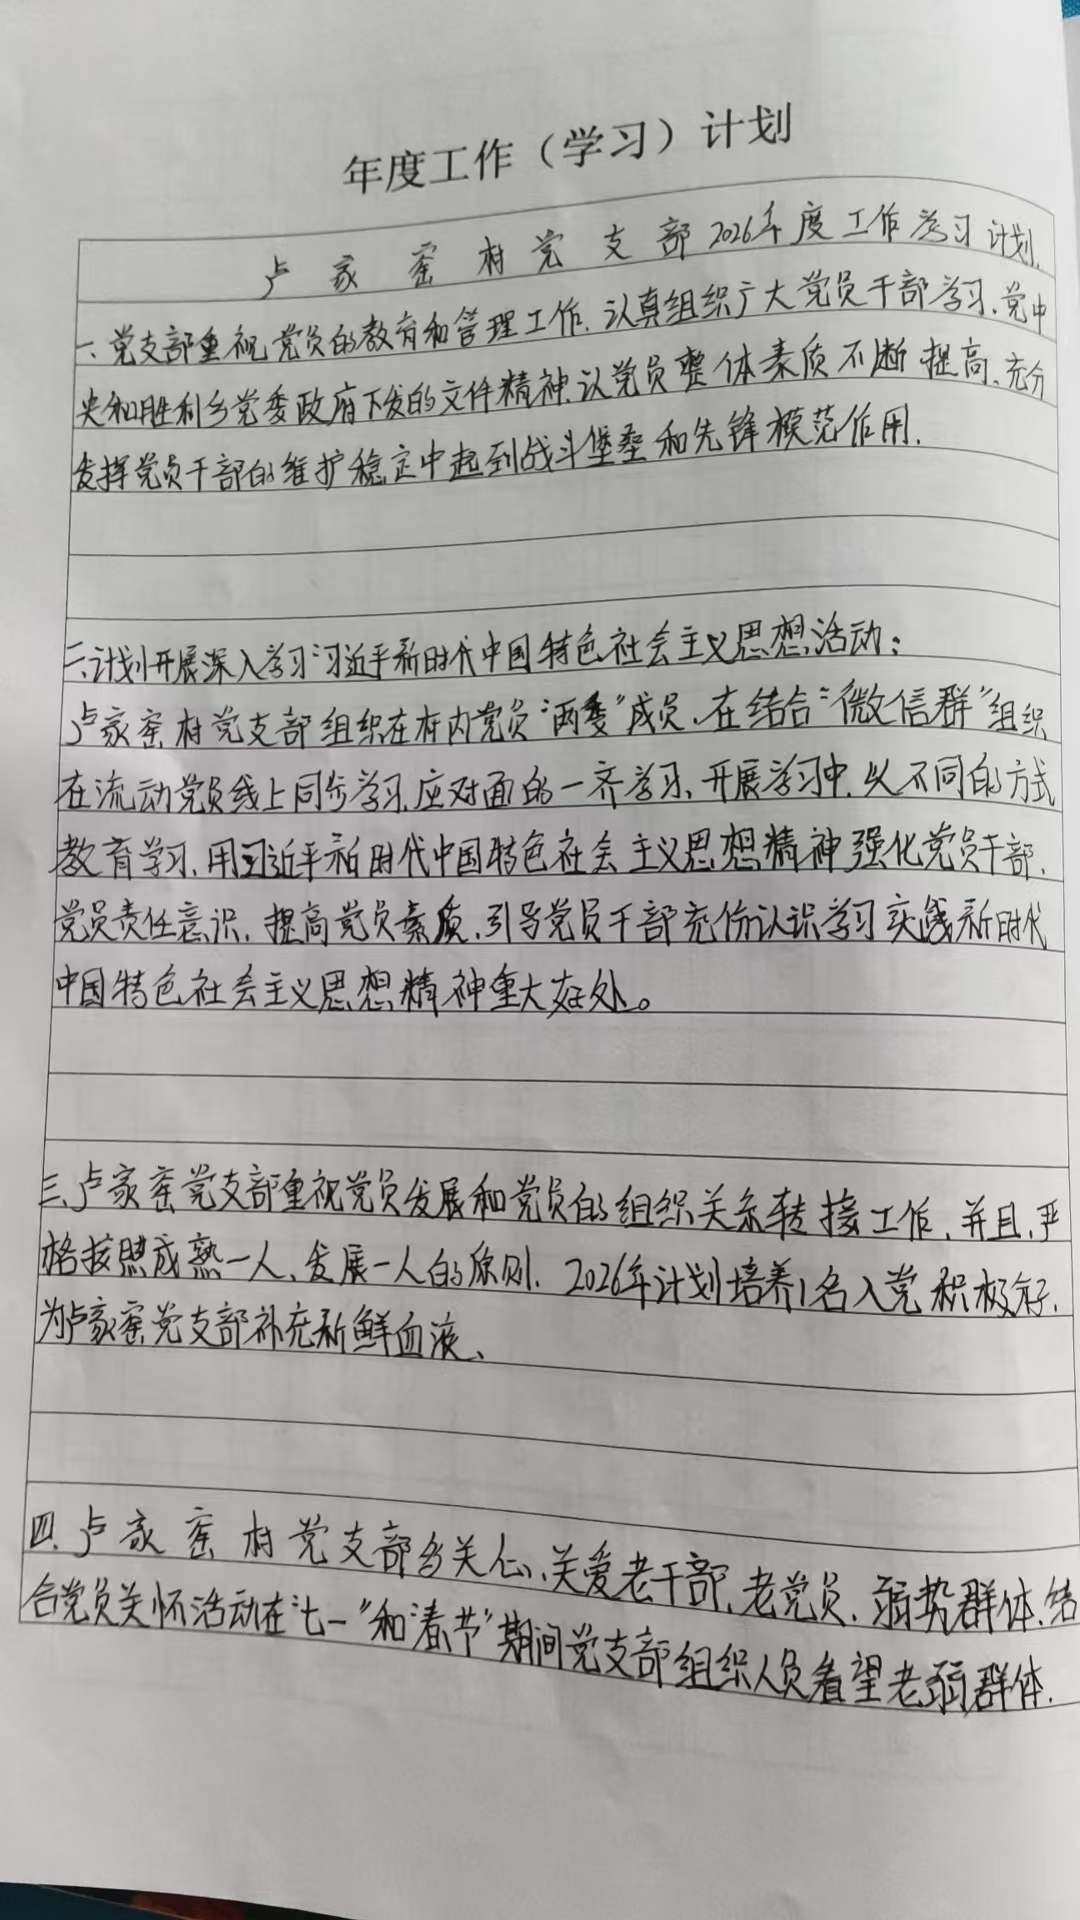 年度工作（学习）计划
卢家窑村党支部2026年度工作学习计划.
一、党支部重视党员的教育和管理工作.认真组织广大党员干部学习.党中
央和胜利乡党委政府下发的文件精神.认党员整体素质不断提高、充分
发挥党员干部的维护稳定中起到战斗堡垒和先锋模范作用.
二、计划开展深入学习习近平新时代中国特色社会主义思想活动：
卢家窑村党支部组织在村内党员“两委”成员、在结合“微信群”组织
在流动党员线上同步学习.应对面的一齐学习、开展学习中.以不同的方式
教育学习.用习近平新时代中国特色社会主义思想精神强化党员干部.
党员责任意识.提高党员素质.引导党员干部充份认识学习实践新时代
中国特色社会主义思想精神重大在处。
三、卢家窑党支部重视党员发展和党员的组织关系转接工作.并且.严
格按照成熟一人、发展一人的原则.2026年计划培养1名入党积极分子.
为卢家窑党支部补充新鲜血液、
四、卢家窑村党支部多关心、关爱老干部.老党员.弱势群体.结
合党员关怀活动在“七一”和“春节”期间党支部组织人员看望老弱群体.